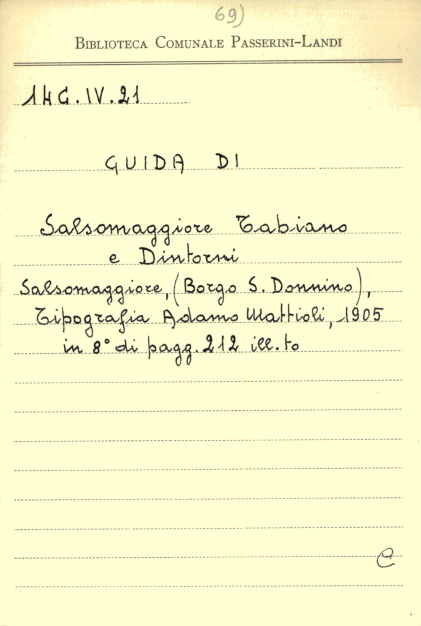 69)
BIBLIOTECA COMUNALE PASSERINI-LANDI
14G.IV.21
GUIDA DI
Salsomaggiore Tabiano
e Dintorni
Salsomaggiore, (Borgo S. Donnino),
Tipografia Adamo Mattioli, 1905
in 8° di pagg. 212 ill.to
C